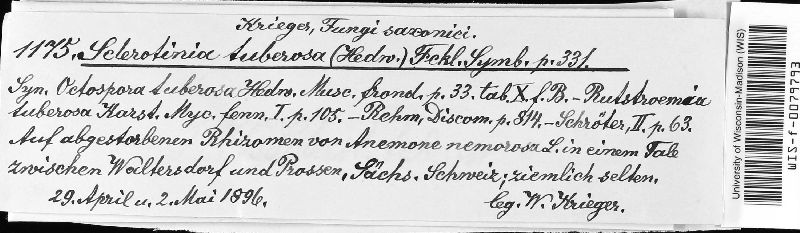 Krieger, Fungi saxonici.
1175. Sclerotinia tuberosa (Hedw.) Fckl. Symb. p. 331.
Syn. Octospora tuberosa Hedw. Musc. frond. p. 33. tab. X. f. B. - Rutstroemia
tuberosa Karst. Myc. fenn. I. p. 105. - Rehm, Discom. p. 814. - Schröter, II. p. 63.
Auf abgestorbenen Rhizomen von Anemone nemorosa L. in einem Tale
zwischen Waltersdorf und Prossen, Sächs. Schweiz; ziemlich selten.
29. April u. 2. Mai 1896. leg. W. Krieger.
University of Wisconsin-Madison (WIS)
WIS-f-0079793